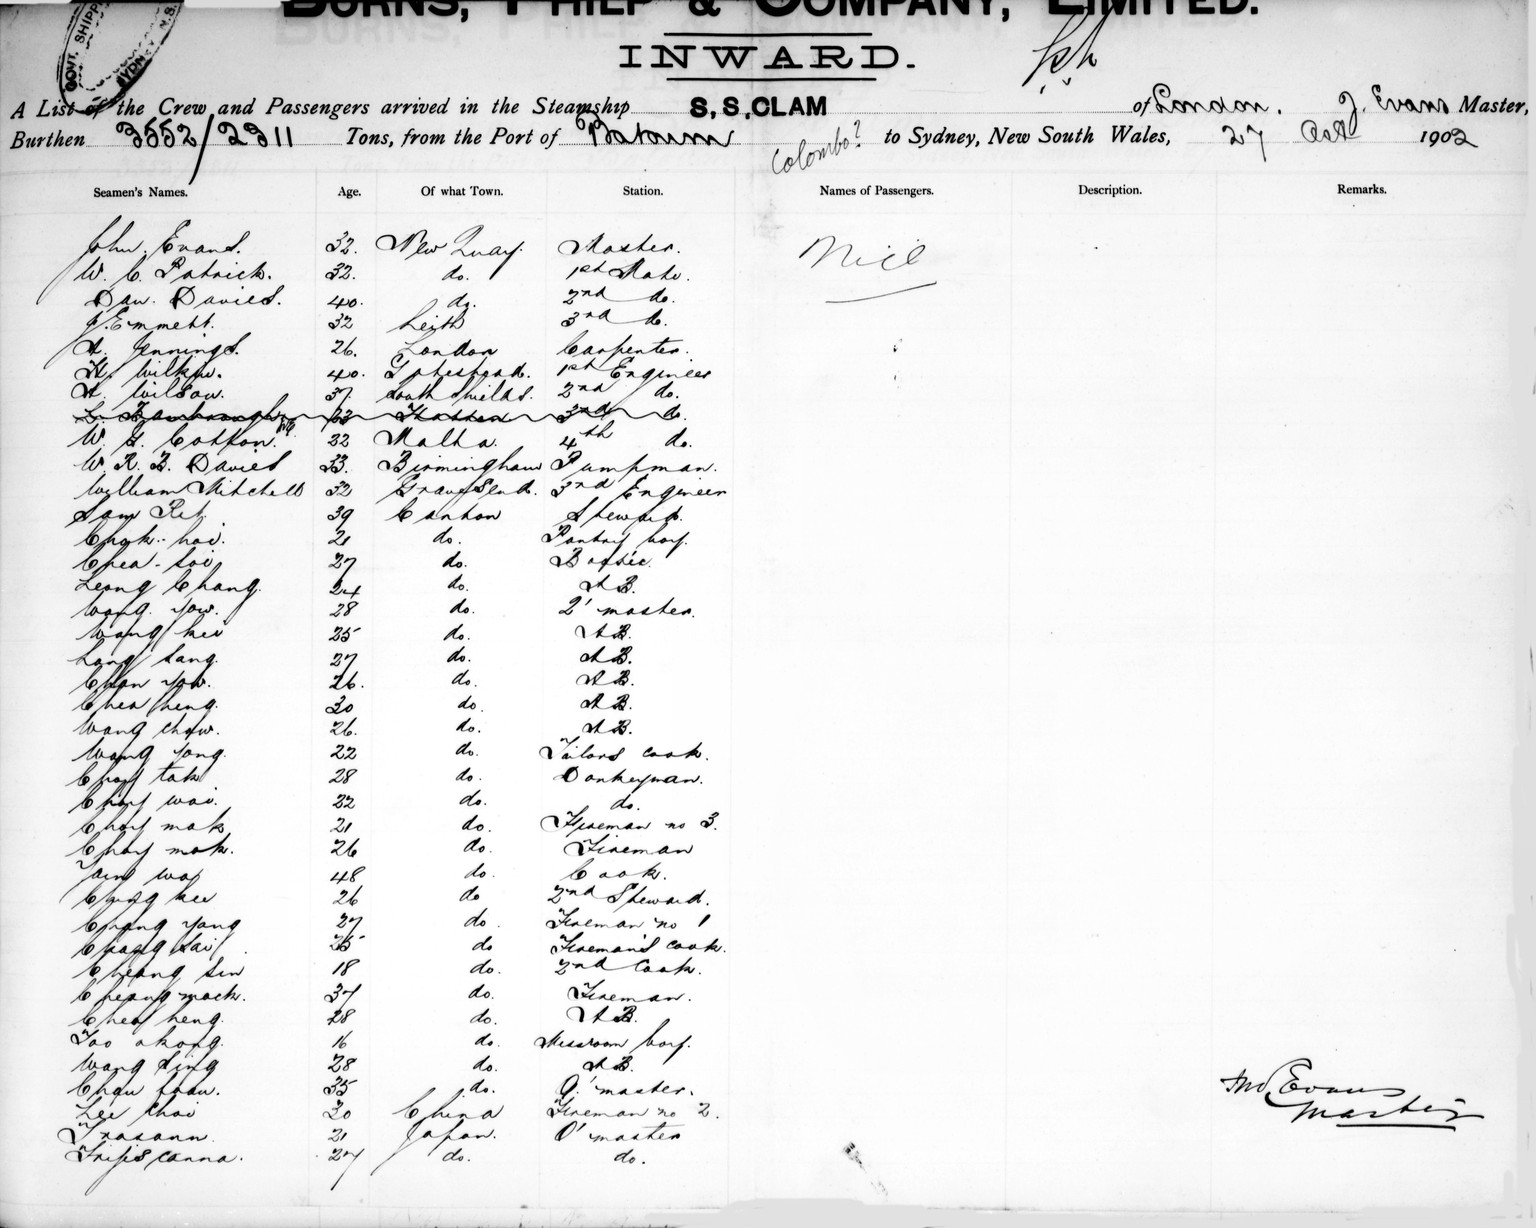 BURNS, PHILP & COMPANY, LIMITED.
INWARD.
GOVT. SHIPP
SYDNEY N.S.
A List of the Crew and Passengers arrived in the Steamship S.S. CLAM of London. J. Evans Master,
Burthen 3552/2311 Tons, from the Port of Batoum Colombo? to Sydney, New South Wales, 27 Oct 1902
Seamen's Names. Age. Of what Town. Station. Names of Passengers. Description. Remarks.
John. Evans. 32. New Quay. Master. Nil
W. C. Patrick. 32. do. 1st Mate.
Dav. Davies. 40. do. 2nd do.
J. Emmett. 32 Leith 3rd do.
A. Jennings. 26. London Carpenter.
H. Wilkin. 40. Gateshead. 1st Engineer
A. Wilson. 37. South Shields. 2nd do.
3rd do.
W. G. Cotton. 32 Malta. 4th do.
W. R. B. Davies 33. Birmingham Pumpman.
William Mitchell 32 Gravesend. 3rd Engineer
Sam 39 Canton Steward.
Chok-hoi. 21 do. Pantry boy.
Chea-Soi 27 do.
Leong Chang. 24 do. AB.
Wong Yow. 28 do. Q' master.
Wong kee 25 do. AB.
Long Sang. 27 do. AB.
Chan Yow. 26. do. AB.
Chea heng. 30 do. AB.
Wong chow. 26. do. AB.
Wong Yong. 22 do. Sailors cook.
Choy tak 28 do. Donkeyman.
Choy wai. 22 do. do.
Choy mak 21 do. Fireman no 3.
Choy mok. 26 do. Fireman
48 do. Cook.
Chong kee 26 do 2nd Steward.
Chong Yong 27 do. Fireman no 1
Chong Sai 25 do Fireman's cook.
Cheang Sin 18 do. 2nd Cook.
Cheong mock. 37 do. Fireman.
Chea heng. 28 do. AB.
Too akong. 16 do. Messroom boy.
Wong Sing 28 do. AB.
Chau 35 do. Q' master.
Lee Choi 30 China Fireman no 2.
21 Japan. Q' master
27 do. do.
Jno Evans
Master